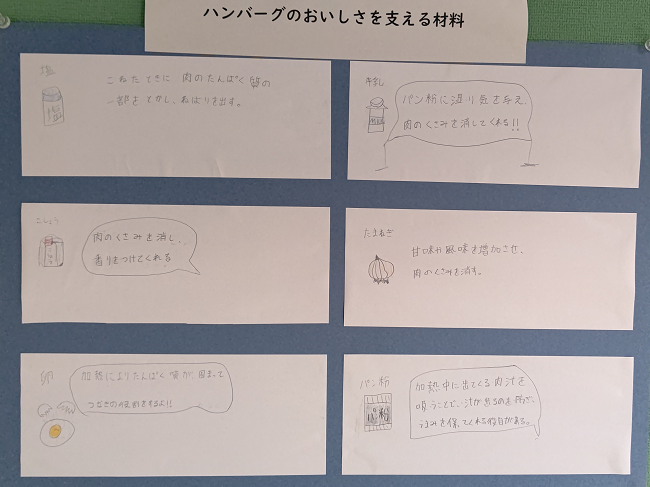 ハンバーグのおいしさを支える材料
塩
塩
こねたときに 肉のたんぱく質の
一部をとかし、ねばりを出す。
牛乳
パン粉に湿り気を与え、
肉のくさみを消してくれる!!
こしょう
肉のくさみを消し、
香りをつけてくれる
たまねぎ
甘味や風味を増加させ、
肉のくさみを消す。
卵
加熱によりたんぱく質が、固まって
つなぎの役わりをするよ!!
パン粉
パン粉
加熱中に出てくる肉汁を
吸うことで、汁が出るのを防ぎ、
うまみを保ってくれる役目がある。